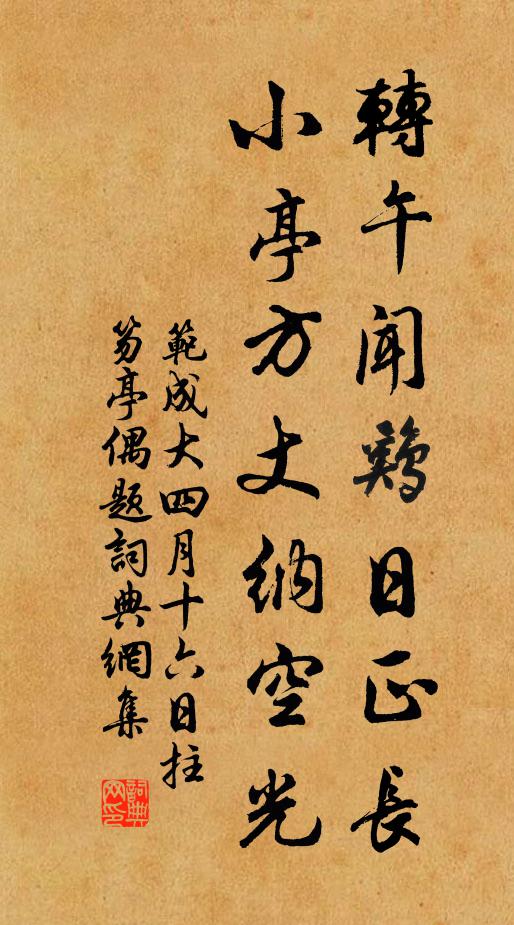 轉午聞鷄日正長
小亭方丈納空光
範成大四月十六日拄
笏亭偶題詞典網集
詞典
网印